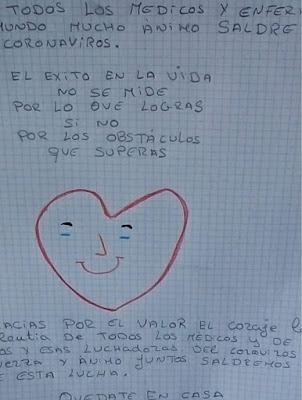 TODOS LOS MEDICOS Y ENFER
MUNDO MUCHO ÁNIMO SALDRE
CORONAVIROS.
EL EXITO EN LA VIDA
NO SE MIDE
POR LO QUE LOGRAS
SI NO
POR LOS OBSTÁCULOS
QUE SUPERAS
ACIAS POR EL VALOR EL CORAJE
DE TODOS LOS MEDICOS Y DE
OS Y ESAS LUCHADORAS DEL
Y ANIMO JUNTOS SALDREMOS
E ESTA LUCHA.
QUEDATE EN CASA